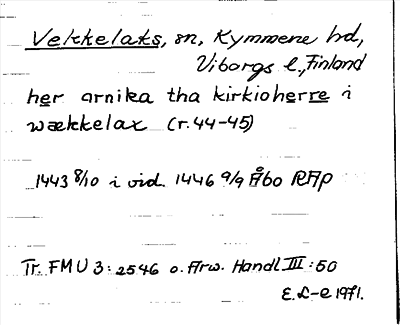 Vekkelaks, sn, Kymmene hd,
Viborgs l., Finland
her arnika tha kirkioherre i
wækkelax (r. 44-45)
1443 8/10 i vid. 1446 9/9 Åbo RAp
Tr. FMU 3: 2546 o. Arw. Handl III: 50
E. L-e 1971.